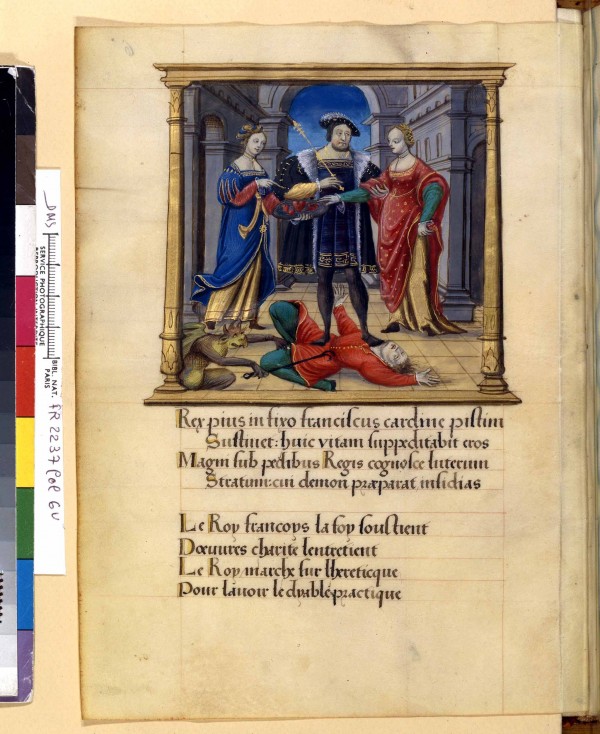 Rex pius in fixo franciscus cardine pistim
Sustinet: huic vitam suppeditabit eros
Magni sub pedibus Regis cognosce luterum
Stratum: cui demon præparat insidias
Le Roy francoys la foy soustient
Dœuures charite lentretient
Le Roy marche sur lhereticque
Pour lauoir le dyable practique
DMS
SERVICE PHOTOGRAPHIQUE
REPRODUCTION INTERDITE
BIBL. NAT. PARIS
FR 2237 fol 6v